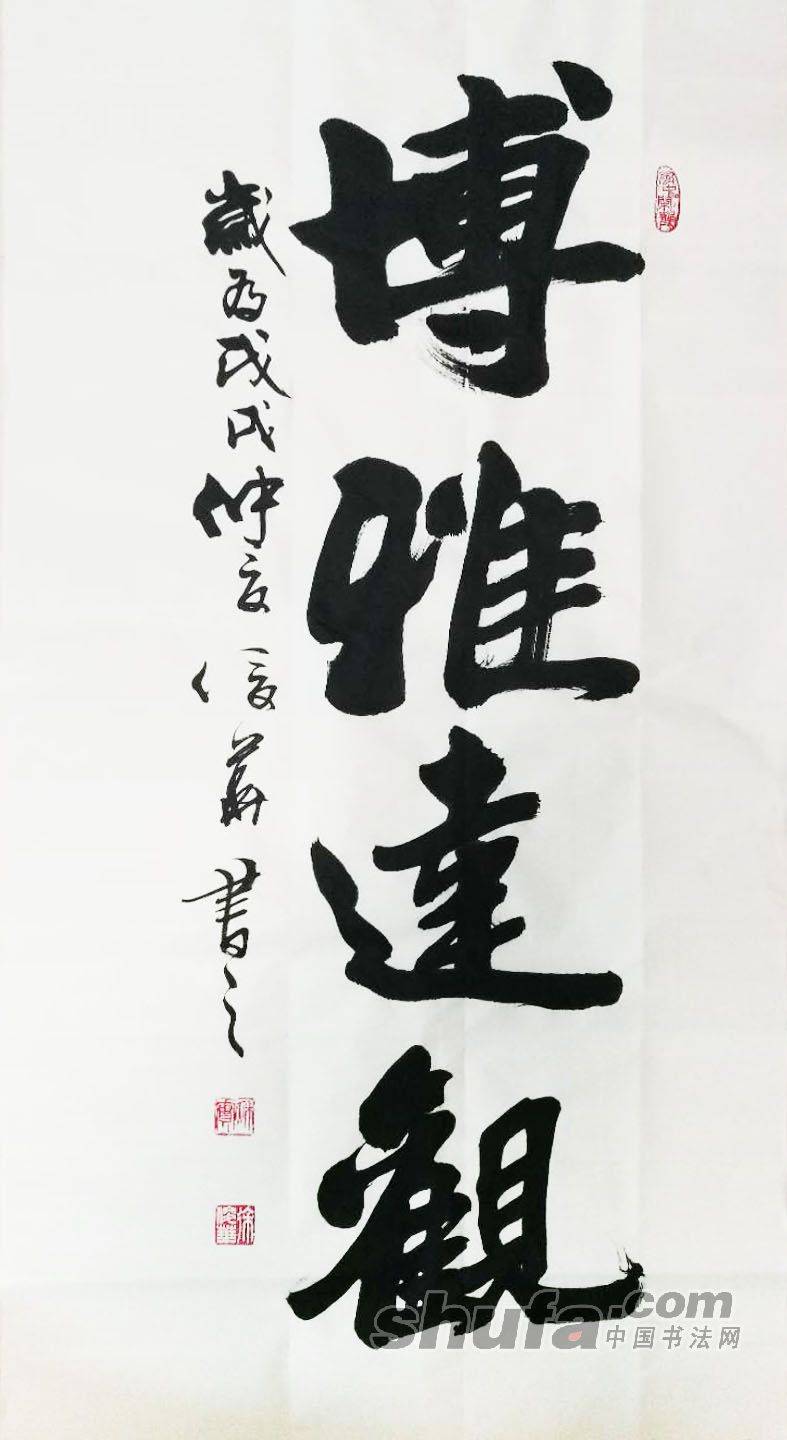 博雅達觀
歲为戊戌仲夏俊華書之
shufa.com
中国书法网